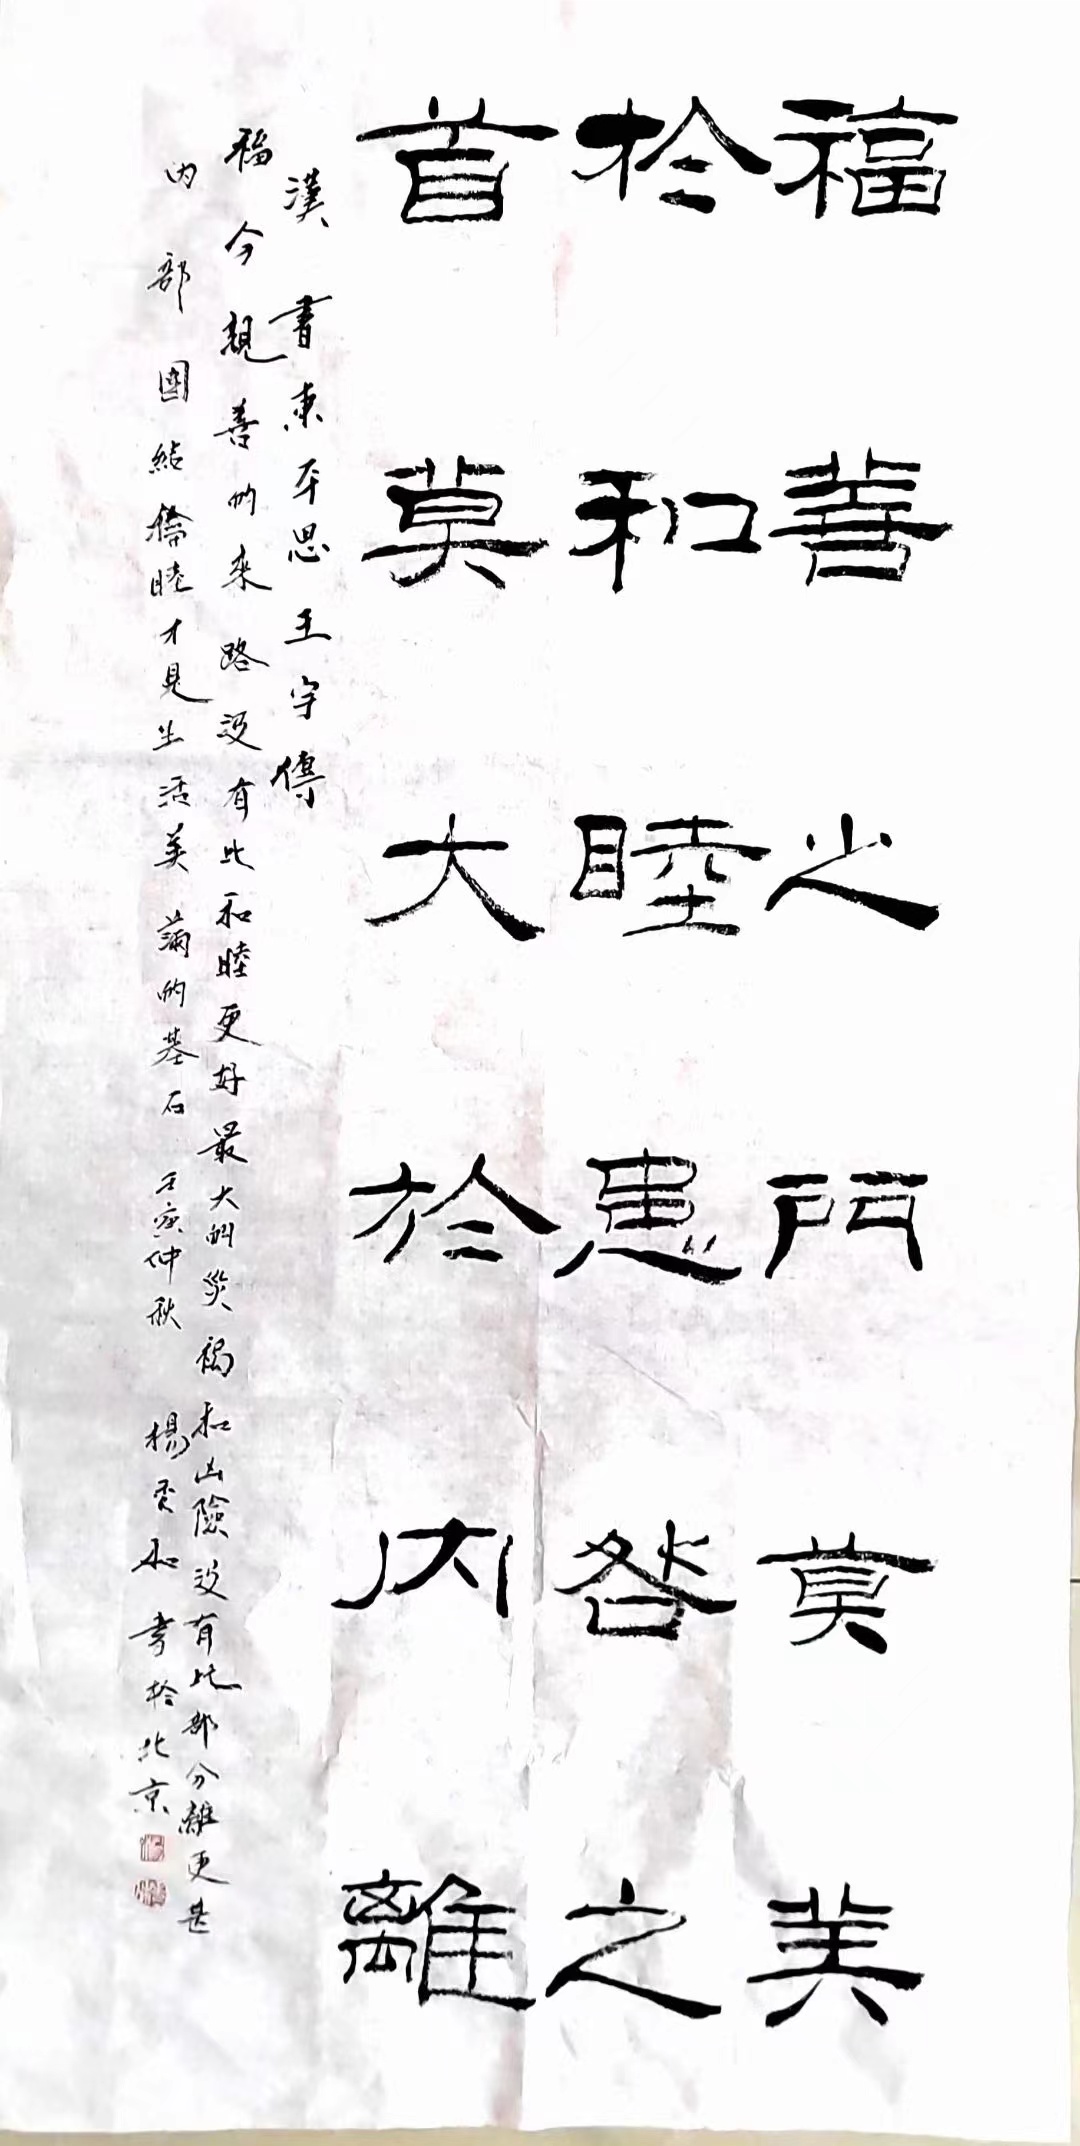 福善之門莫美
於和睦患咎之
首莫大於內離
漢書東平思王宇傳
福今親善的來路沒有比和睦更好最大的災禍和凶險沒有比部分離更甚
內部團結和睦才見生活美滿的基石 壬寅仲秋 楊 和書於北京